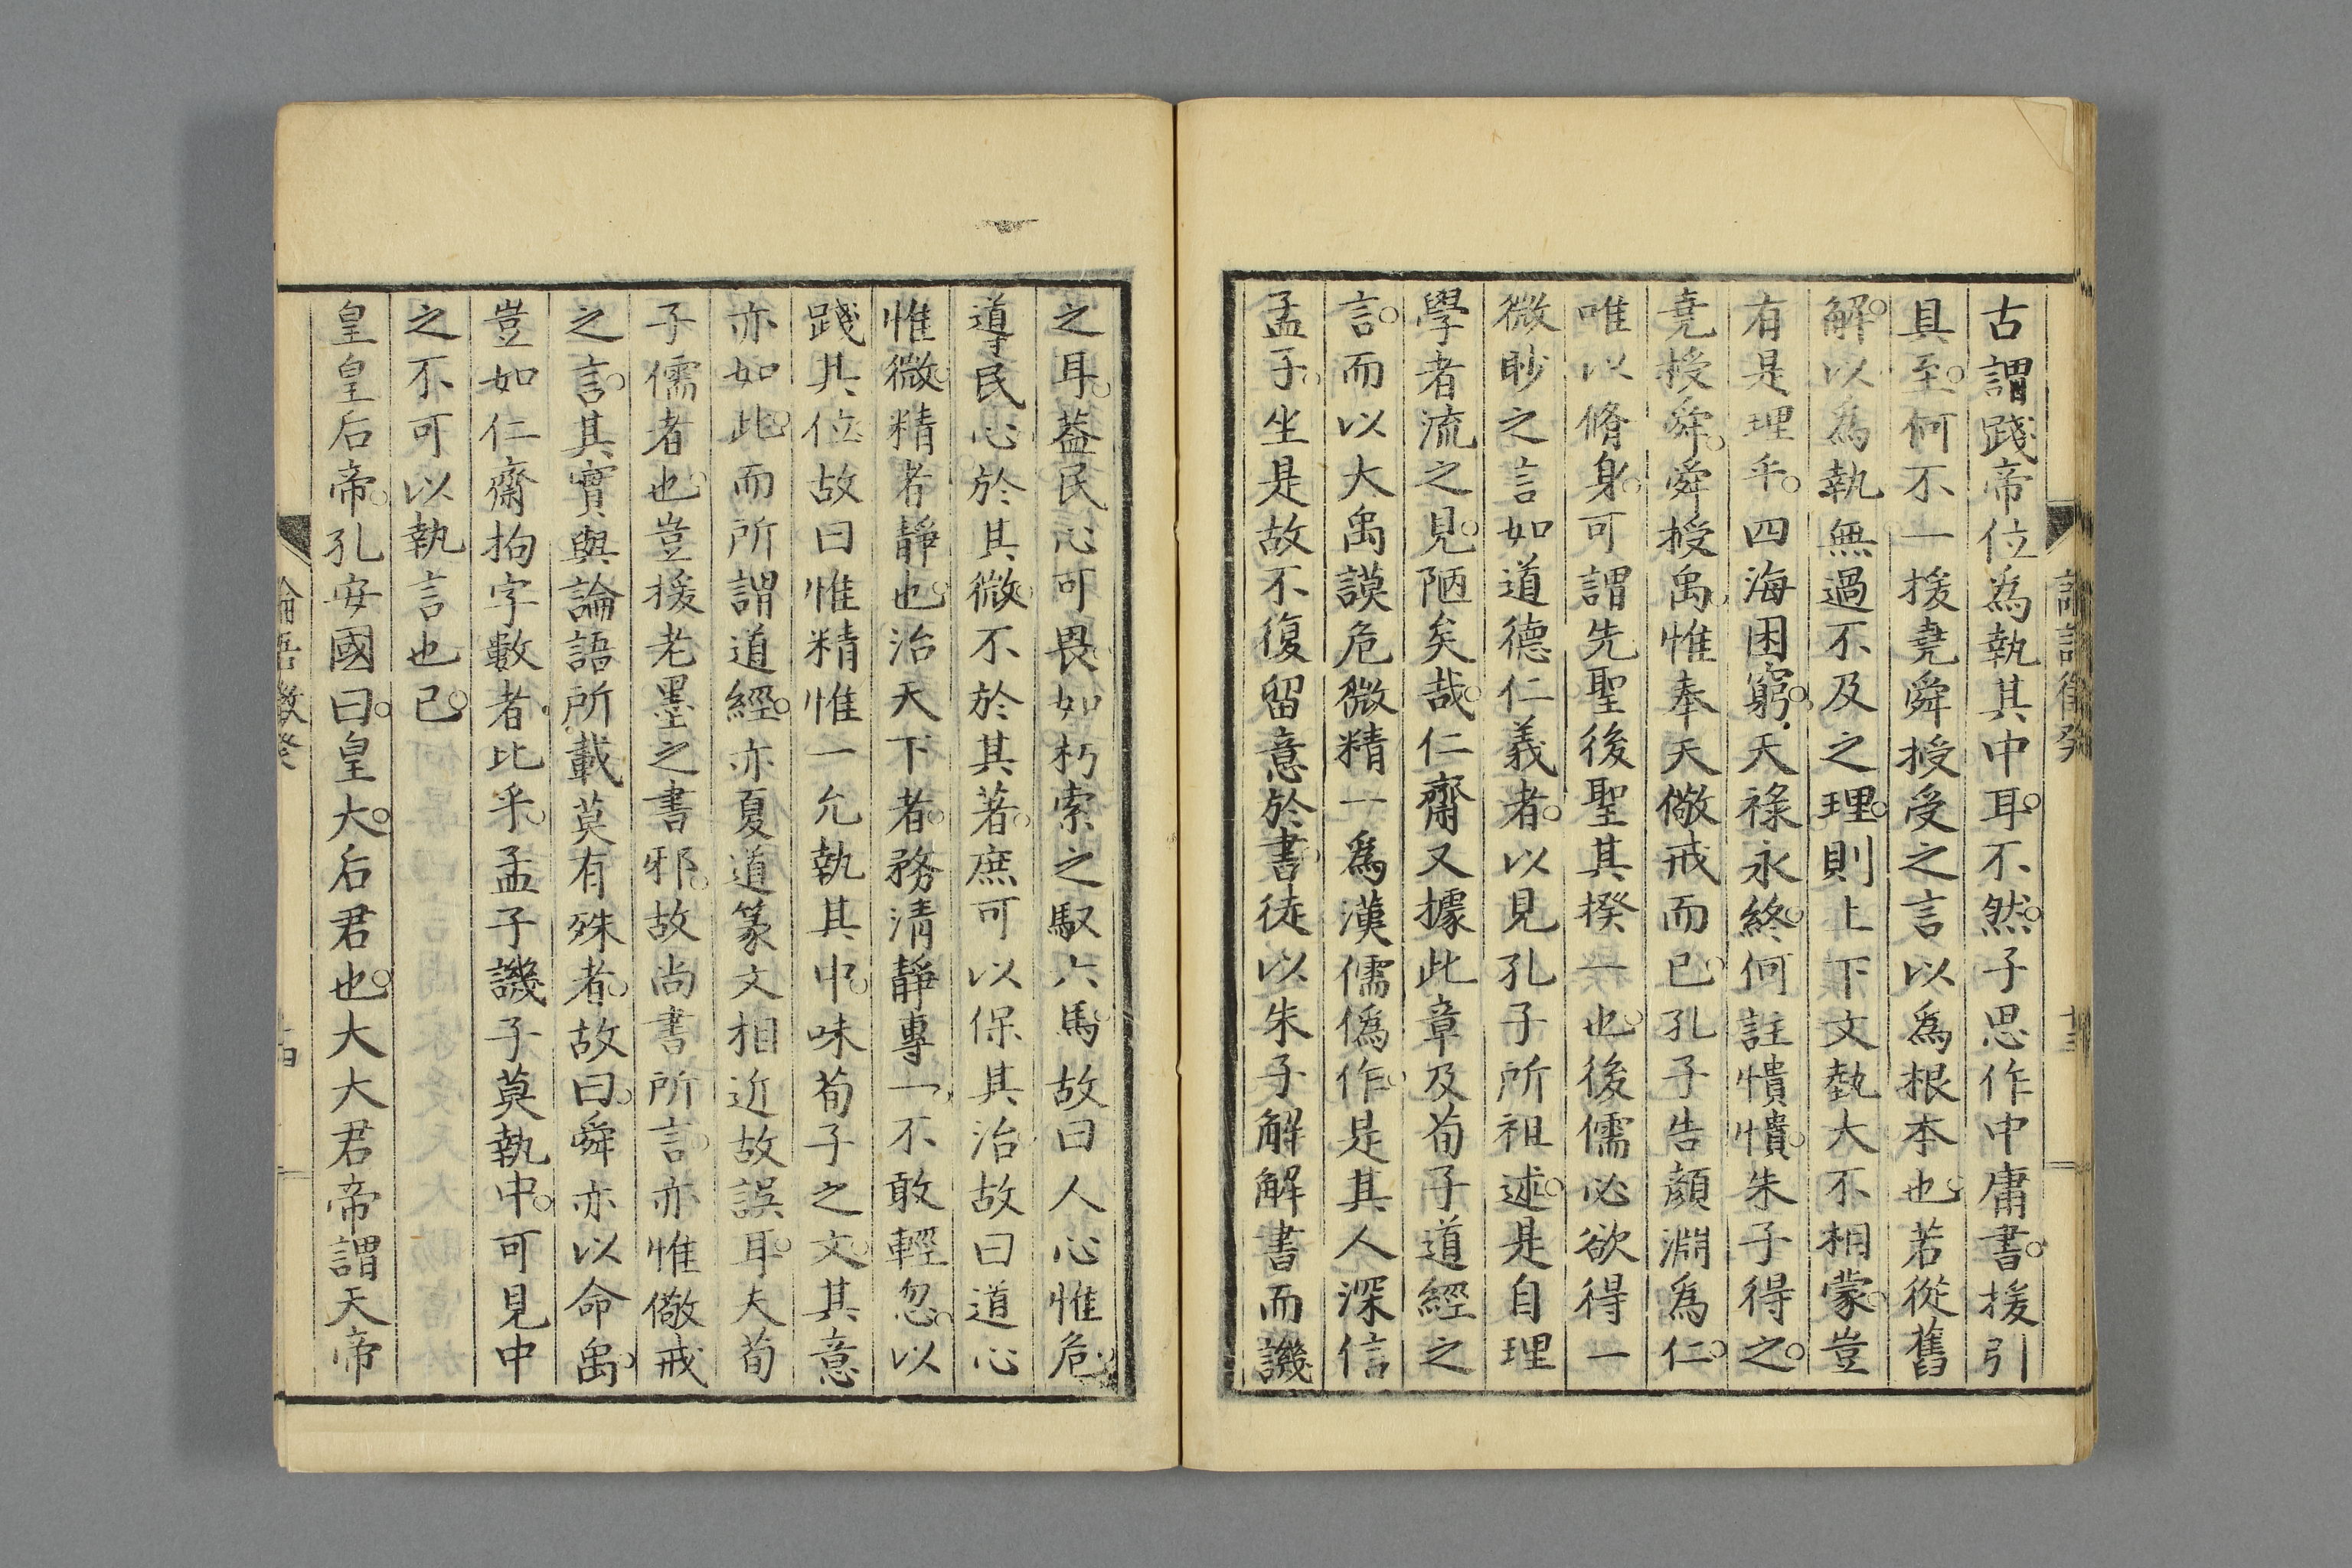 古謂踐帝位為執其中耳不然子思作中庸書援引
具至何不一援堯舜授受之言以為根本也若從舊
解以爲執無過不及之理則上下文埶大不相蒙豈
有是理乎四海困窮天祿永終何註憒憒朱子得之
堯授舜舜授禹惟奉天儆戒而已孔子告顏淵爲仁
唯以脩身可謂先聖後聖其揆一也後儒必欲得一
微眇之言如道德仁義者以見孔子所祖述是自理
學者流之見陋矣哉仁齋又據此章及荀子道經之
言而以大禹謨危微精一爲漢儒僞作是其人深信
孟子坐是故不復留意於書徒以朱子解解書而譏
之耳葢民心可畏如朽索之馭六馬故曰人心惟危
導民心於其微不於其著庶可以保其治故曰道心
惟微精者靜也治天下者務清靜專一不敢輕忽以
踐其位故曰惟精惟一允執其中味荀子之文其意
亦如此而所謂道經亦夏道篆文相近故誤耳夫荀
子儒者也豈援老墨之書邪故尚書所言亦惟儆戒
之言其實與論語所載莫有殊者故曰舜亦以命禹
豈如仁齋拘字數者比乎孟子譏子莫執中可見中
之不可以執言也已
皇皇后帝孔安國曰皇大后君也大大君帝謂天帝